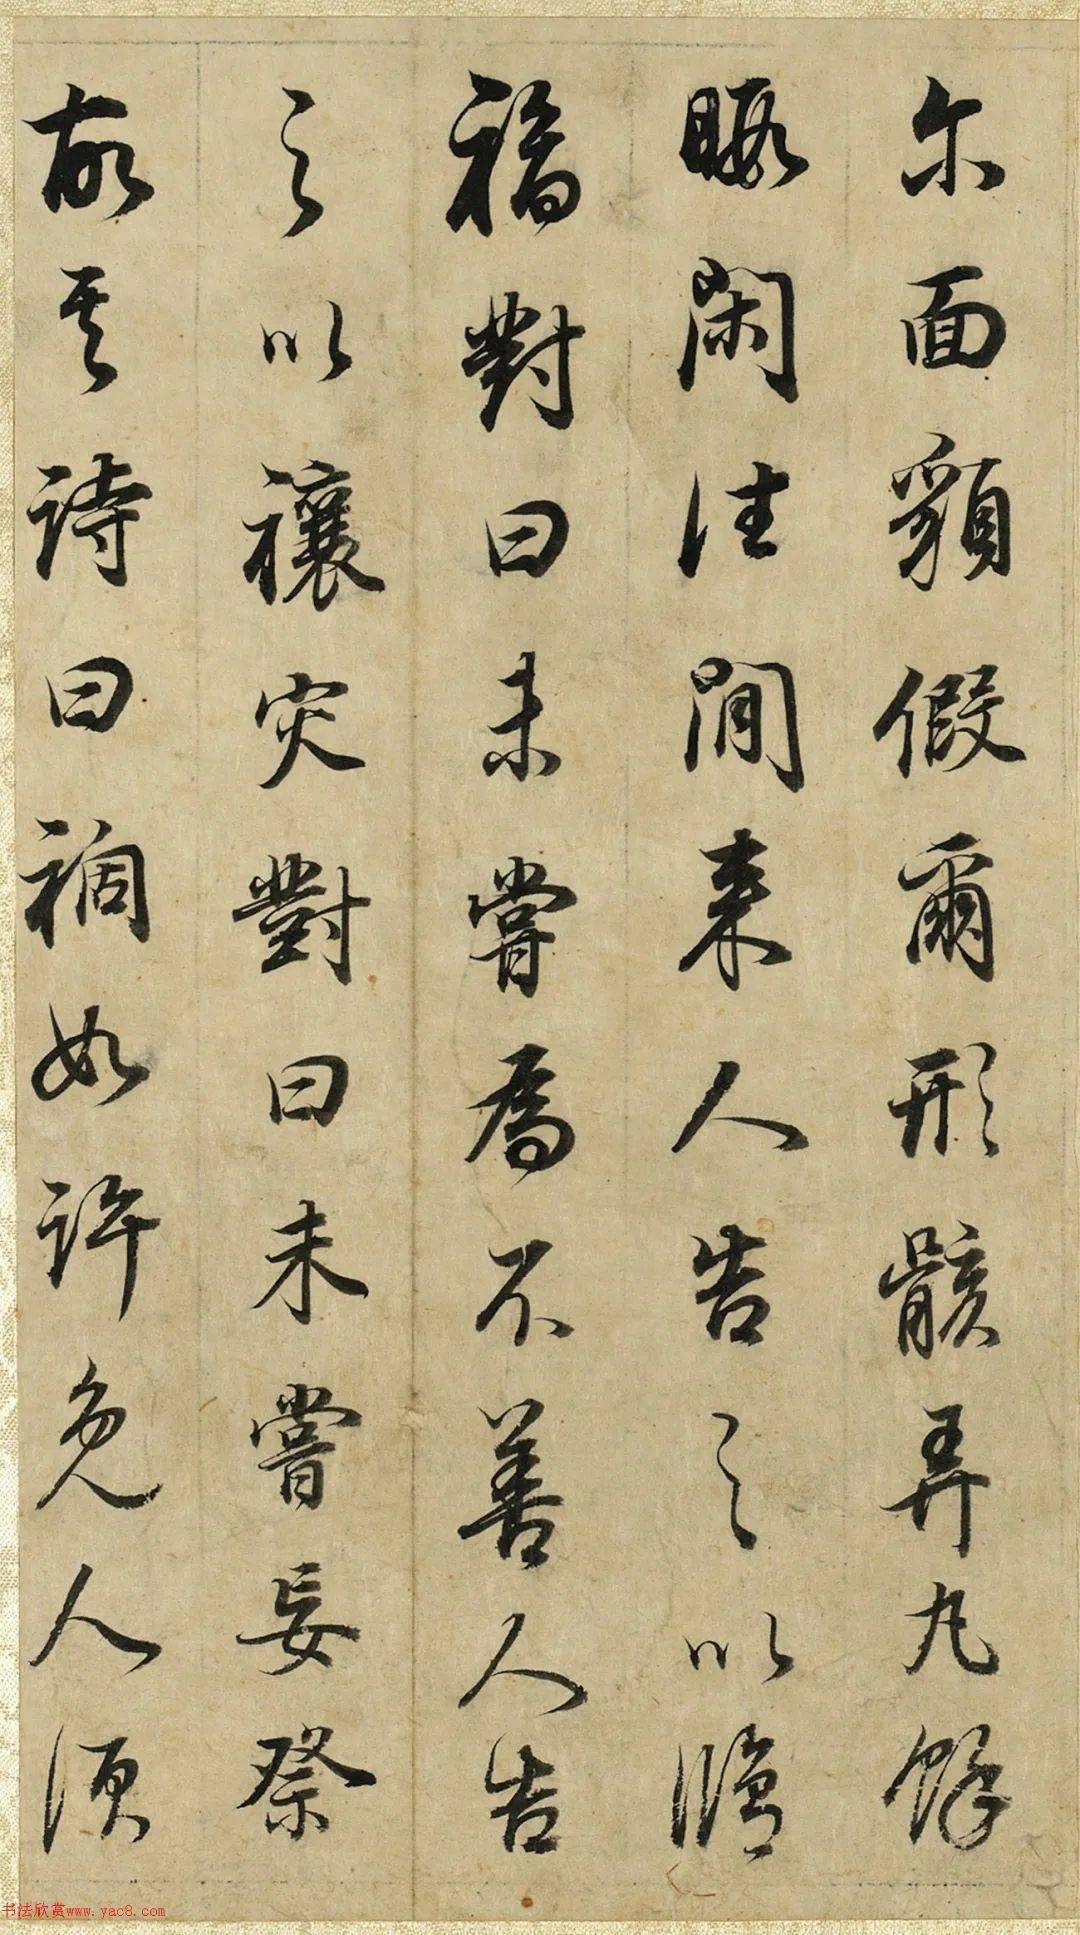 尓面䫉假爾形骸弄丸餘
暇閑往閒来人告之以脩
福對曰未嘗為不善人告
之以禳灾對曰未嘗妄祭
故其詩曰禍如許免人須
书法欣赏www.yac8.com